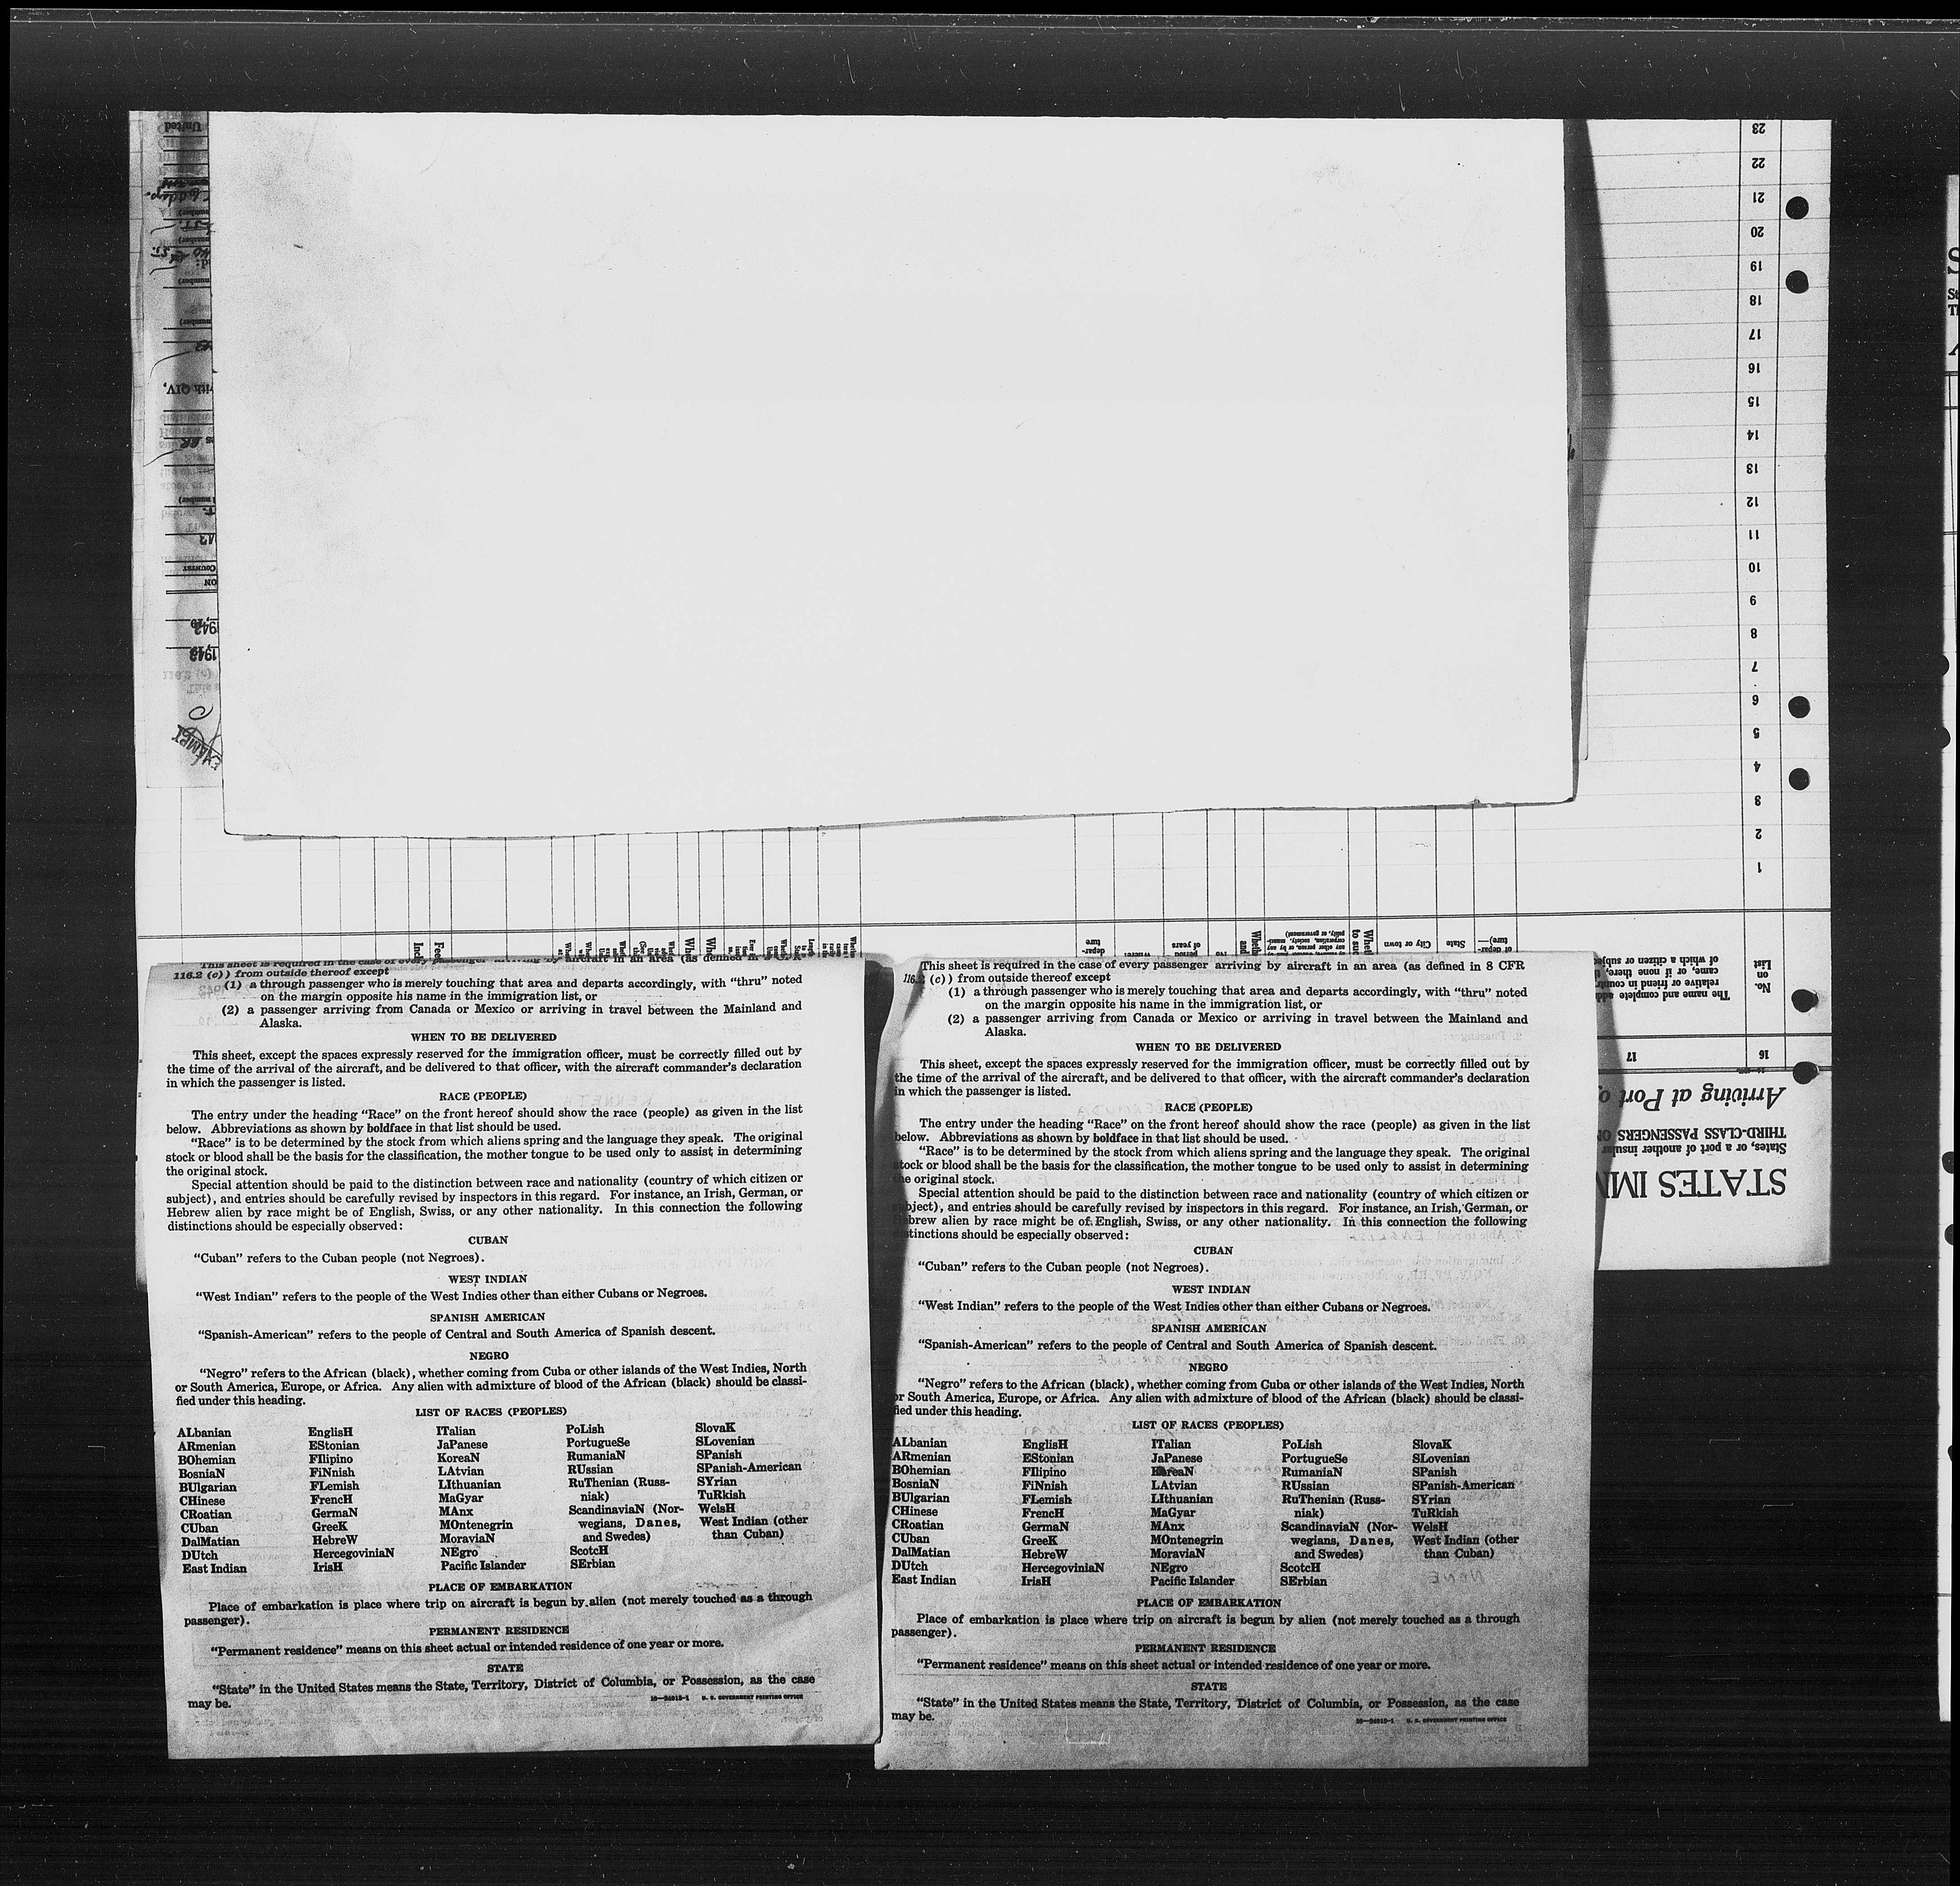 This sheet is required in the case of every passenger arriving by aircraft in an area (as defined in 8
116.2 (c)) from outside thereof except
(1) a through passenger who is merely touching that area and departs accordingly, with “thru” noted
on the margin opposite his name in the immigration list, or
(2) a passenger arriving from Canada or Mexico or arriving in travel between the Mainland and
Alaska.
WHEN TO BE DELIVERED
This sheet, except the spaces expressly reserved for the immigration officer, must be correctly filled out by
the time of the arrival of the aircraft, and be delivered to that officer, with the aircraft commander's declaration
in which the passenger is listed.
RACE (PEOPLE)
The entry under the heading “Race” on the front hereof should show the race (people) as given in the list
below. Abbreviations as shown by boldface in that list should be used.
“Race” is to be determined by the stock from which aliens spring and the language they speak. The original
stock or blood shall be the basis for the classification, the mother tongue to be used only to assist in determining
the original stock.
Special attention should be paid to the distinction between race and nationality (country of which citizen or
subject), and entries should be carefully revised by inspectors in this regard. For instance, an Irish, German, or
Hebrew alien by race might be of English, Swiss, or any other nationality. In this connection the following
distinctions should be especially observed:
CUBAN
“Cuban” refers to the Cuban people (not Negroes).
WEST INDIAN
“West Indian” refers to the people of the West Indies other than either Cubans or Negroes.
SPANISH AMERICAN
“Spanish-American” refers to the people of Central and South America of Spanish descent.
NEGRO
“Negro” refers to the African (black), whether coming from Cuba or other islands of the West Indies, North
or South America, Europe, or Africa. Any alien with admixture of blood of the African (black) should be classi-
fied under this heading.
LIST OF RACES (PEOPLES)
ALbanian
ARmenian
BOhemian
BosniaN
BUlgarian
CHinese
CRoatian
CUban
DalMatian
DUtch
East Indian
EnglisH
EStonian
FIlipino
FiNnish
FLemish
FrencH
GermaN
GreeK
HebreW
HercegoviniaN
IrisH
ITalian
JaPanese
KoreaN
LAtvian
LIthuanian
MaGyar
MAnx
MOntenegrin
MoraviaN
NEgro
Pacific Islander
PoLish
PortugueSe
RumaniaN
RUssian
RuThenian (Russ-
niak)
ScandinaviaN (Nor-
wegians, Danes,
and Swedes)
ScotcH
SErbian
SlovaK
SLovenian
SPanish
SPanish-American
SYrian
TuRkish
WelsH
West Indian (other
than Cuban)
PLACE OF EMBARKATION
Place of embarkation is place where trip on aircraft is begun by alien (not merely touched as a through
passenger).
PERMANENT RESIDENCE
“Permanent residence” means on this sheet actual or intended residence of one year or more.
STATE
“State” in the United States means the State, Territory, District of Columbia, or Possession, as the case
may be.
16—24013-1 U. S. GOVERNMENT PRINTING OFFICE
This sheet is required in the case of every passenger arriving by aircraft in an area (as defined in 8 CFR
116.2 (c)) from outside thereof except
(1) a through passenger who is merely touching that area and departs accordingly, with “thru” noted
on the margin opposite his name in the immigration list, or
(2) a passenger arriving from Canada or Mexico or arriving in travel between the Mainland and
Alaska.
WHEN TO BE DELIVERED
This sheet, except the spaces expressly reserved for the immigration officer, must be correctly filled out by
the time of the arrival of the aircraft, and be delivered to that officer, with the aircraft commander's declaration
in which the passenger is listed.
RACE (PEOPLE)
The entry under the heading “Race” on the front hereof should show the race (people) as given in the list
below. Abbreviations as shown by boldface in that list should be used.
“Race” is to be determined by the stock from which aliens spring and the language they speak. The original
stock or blood shall be the basis for the classification, the mother tongue to be used only to assist in determining
the original stock.
Special attention should be paid to the distinction between race and nationality (country of which citizen or
subject), and entries should be carefully revised by inspectors in this regard. For instance, an Irish, German, or
Hebrew alien by race might be of English, Swiss, or any other nationality. In this connection the following
distinctions should be especially observed:
CUBAN
“Cuban” refers to the Cuban people (not Negroes).
WEST INDIAN
“West Indian” refers to the people of the West Indies other than either Cubans or Negroes.
SPANISH AMERICAN
“Spanish-American” refers to the people of Central and South America of Spanish descent.
NEGRO
“Negro” refers to the African (black), whether coming from Cuba or other islands of the West Indies, North
or South America, Europe, or Africa. Any alien with admixture of blood of the African (black) should be classi-
fied under this heading.
LIST OF RACES (PEOPLES)
ALbanian
ARmenian
BOhemian
BosniaN
BUlgarian
CHinese
CRoatian
CUban
DalMatian
DUtch
East Indian
EnglisH
EStonian
FIlipino
FiNnish
FLemish
FrencH
GermaN
GreeK
HebreW
HercegoviniaN
IrisH
ITalian
JaPanese
KoreaN
LAtvian
LIthuanian
MaGyar
MAnx
MOntenegrin
MoraviaN
NEgro
Pacific Islander
PoLish
PortugueSe
RumaniaN
RUssian
RuThenian (Russ-
niak)
ScandinaviaN (Nor-
wegians, Danes,
and Swedes)
ScotcH
SErbian
SlovaK
SLovenian
SPanish
SPanish-American
SYrian
TuRkish
WelsH
West Indian (other
than Cuban)
PLACE OF EMBARKATION
Place of embarkation is place where trip on aircraft is begun by alien (not merely touched as a through
passenger).
PERMANENT RESIDENCE
“Permanent residence” means on this sheet actual or intended residence of one year or more.
STATE
“State” in the United States means the State, Territory, District of Columbia, or Possession, as the case
may be.
16—24013-1 U. S. GOVERNMENT PRINTING OFFICE
STATES IMM
States, or a port of another insular
THIRD-CLASS PASSENGERS ON
Arriving at Port o
16
17
No.
on
List
The name and complete add
relative or friend in countr
came, or if none there, th
of which a citizen or subjec
State
City or town
1
2
3
4
5
6
7
8
9
10
11
12
13
14
15
16
17
18
19
20
21
22
23
1943
United